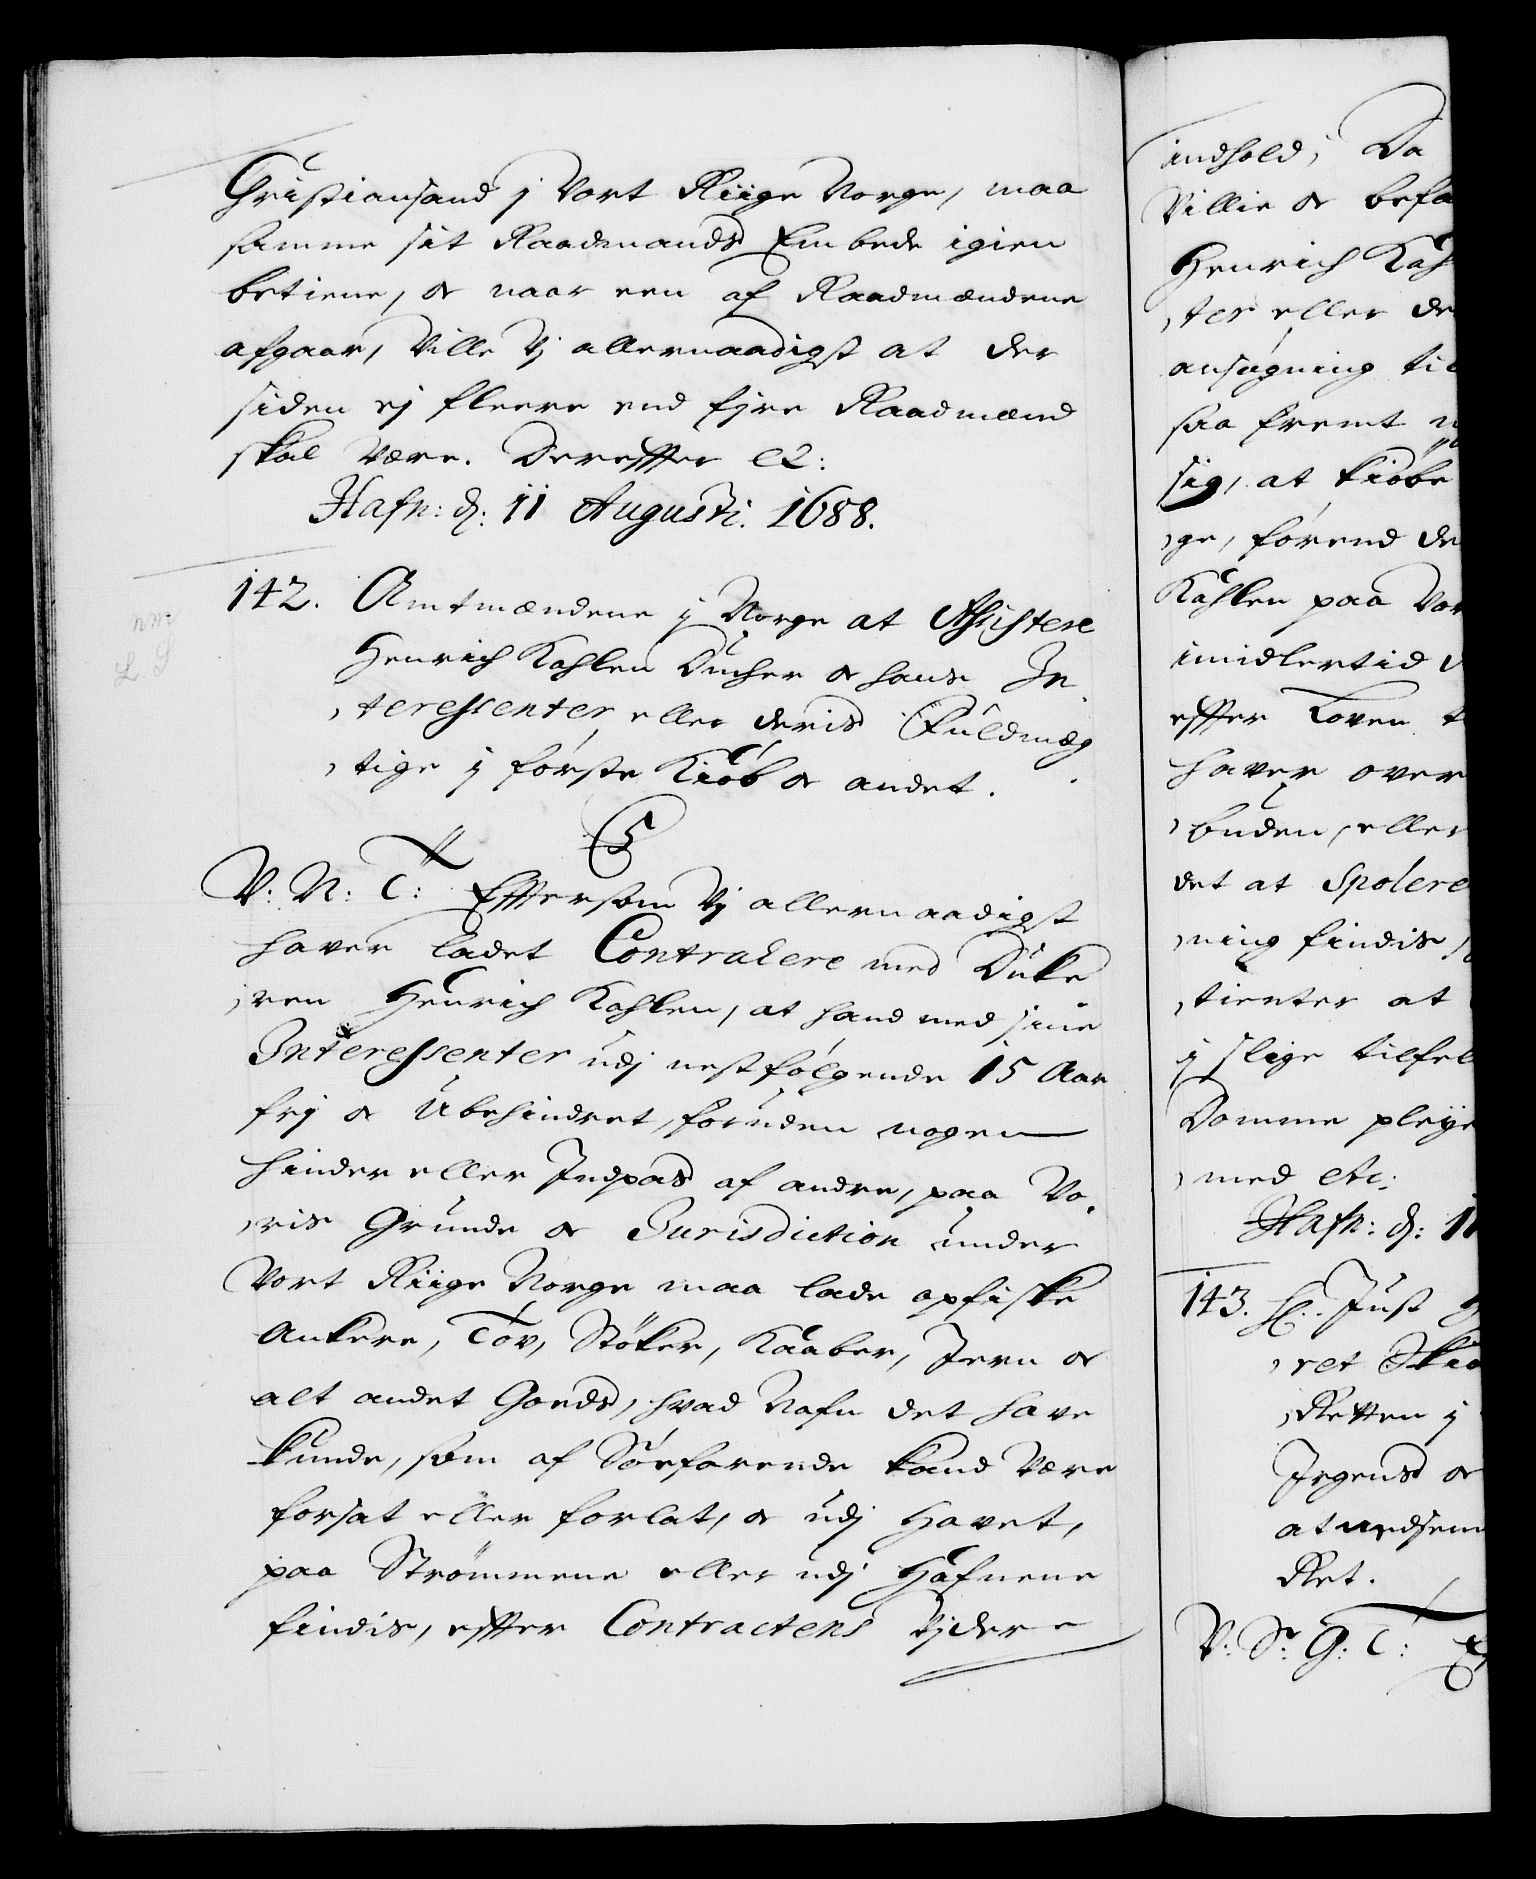 Christiansand j Vort Riige Norge, maa
samme sit Raadmands Embede igien
betiene, og naar een af Raadmændene
afgaar, Ville Vj allernaadigst at der
siden ej fleere end fire Raadmænd
skal være. Derefter etc:
Hafn: d: 11 Augusti. 1688.
142. Amtmændene j Norge at Assistere
Henrich Kahlen Ducher og hans In
teressenter, eller deris Fuldmæg
tige j første Kiøb og andet.
C5
V: N: T: Eftersom Vj allernaadigst
haver ladet Contrahere med Duke
ren Henrich Kahlen, at hand med sine
Interessenter udj nestfølgende 15 Aar
frj og Ubehindret, foruden nogen
hinder eller Indpas af andre, paa Vo
ris Grunde og Jurisdiction under
Vort Riige Norge maa lade opfiske
Ankere, Tov, Støker, Kaaber, Jern og
alt andet Goeds, hvad Nafn det have
kunde, som af Søefarende kand være
forsat eller forlat, og udj Havet,
paa Strømmene eller udj Hafnene
findis, efter Contractens Vjdere
indhold; Da
Villie og befa
Henrich Kah
ter eller de
ansøgning til
saa fremt
sig, at kiøbe
ge, førend de
Kahlen paa Vor
imidlertid
efter Loven
haver over
buden, eller
det at Spolere
ning findis,
tienter at
j slige tilfel
Domme pleije
med etc:
Hafn: d: 11
143. Hr. Just
ret Skiø
Retten j
Jrgens og
at nedsen
Ret.
V: Sr: G: T: